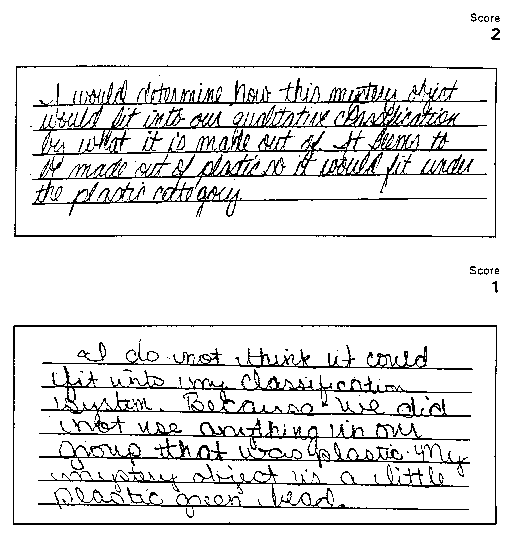 Score
2
I would determine how this mystery object
would fit into our qualitative classification
by what it is made out of. It seems to
be made out of plastic so it would fit under
the plastic category.
Score
1
I do not think it could
fit into my classification
system. Because we did
not use anything in our
group that was plastic. My
mystery object is a little
plastic green bead.